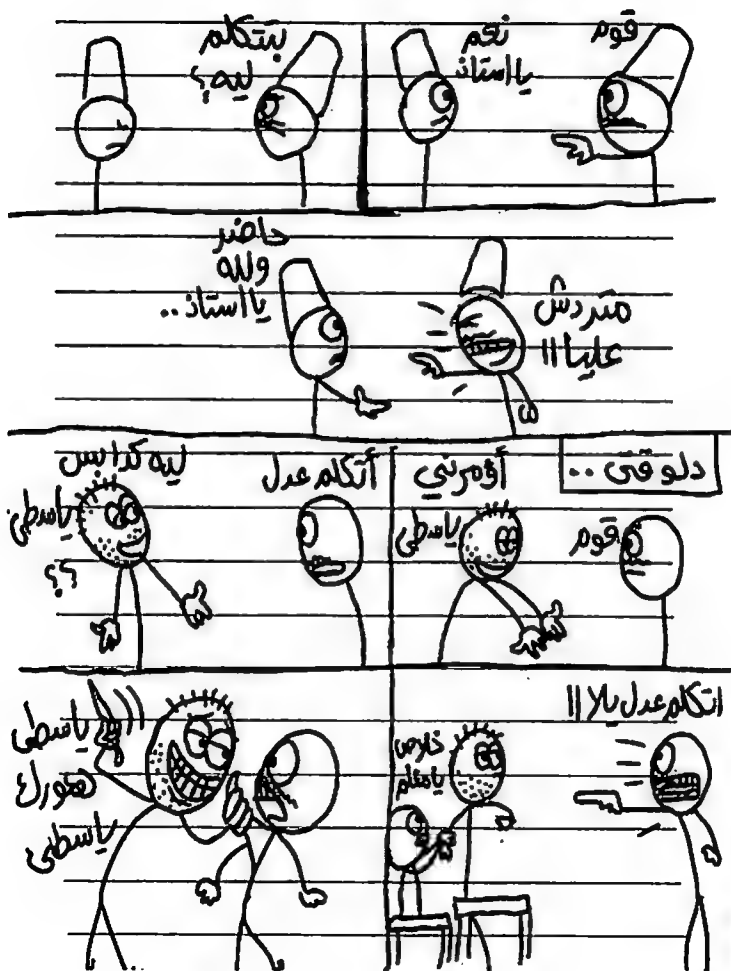 قوم
نعم
يا استاذ
بتتكلم
ليه ؟
متردش
عليا !!
حاضر
ولله
يا استاذ ..
دلوقتى ..
قوم
أؤمرني
ياسطى
أتكلم عدل
ليه كدا بس
ياسطى
؟؟
اتكلم عدل يلا !!
خلاص
يا معلم
ياسطى
هعورك
ياسطى